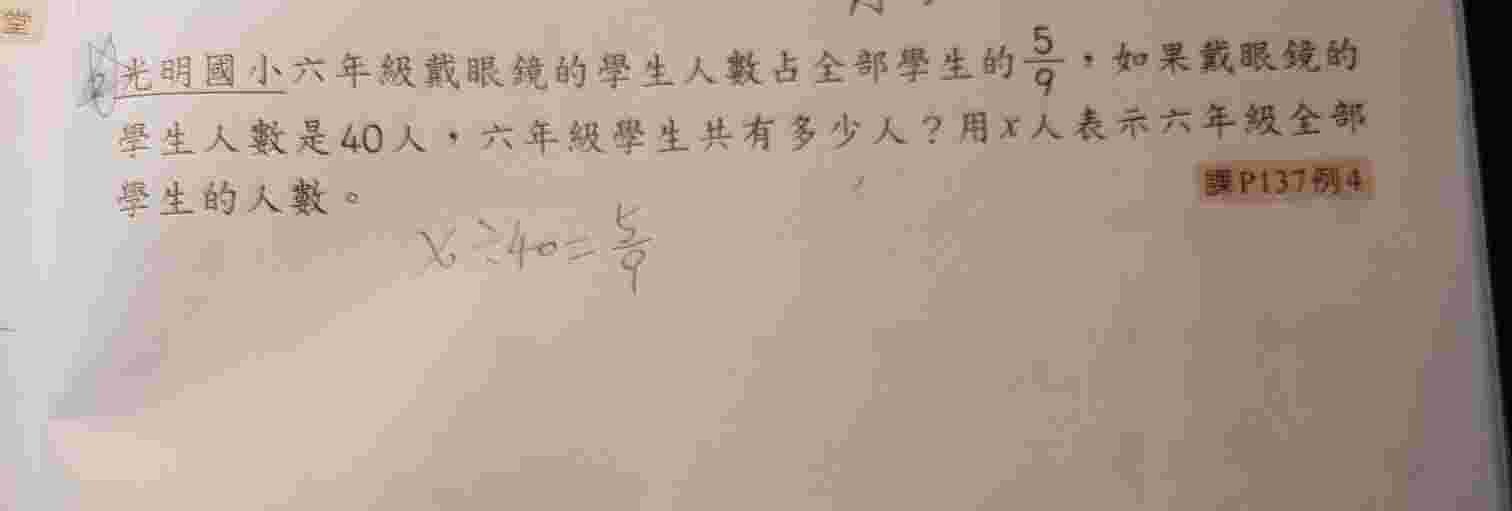 堂
光明國小六年級戴眼鏡的學生人數占全部學生的5/9，如果戴眼鏡的
學生人數是40人，六年級學生共有多少人？用x人表示六年級全部
學生的人數。
課P137例4
x÷40=5/9